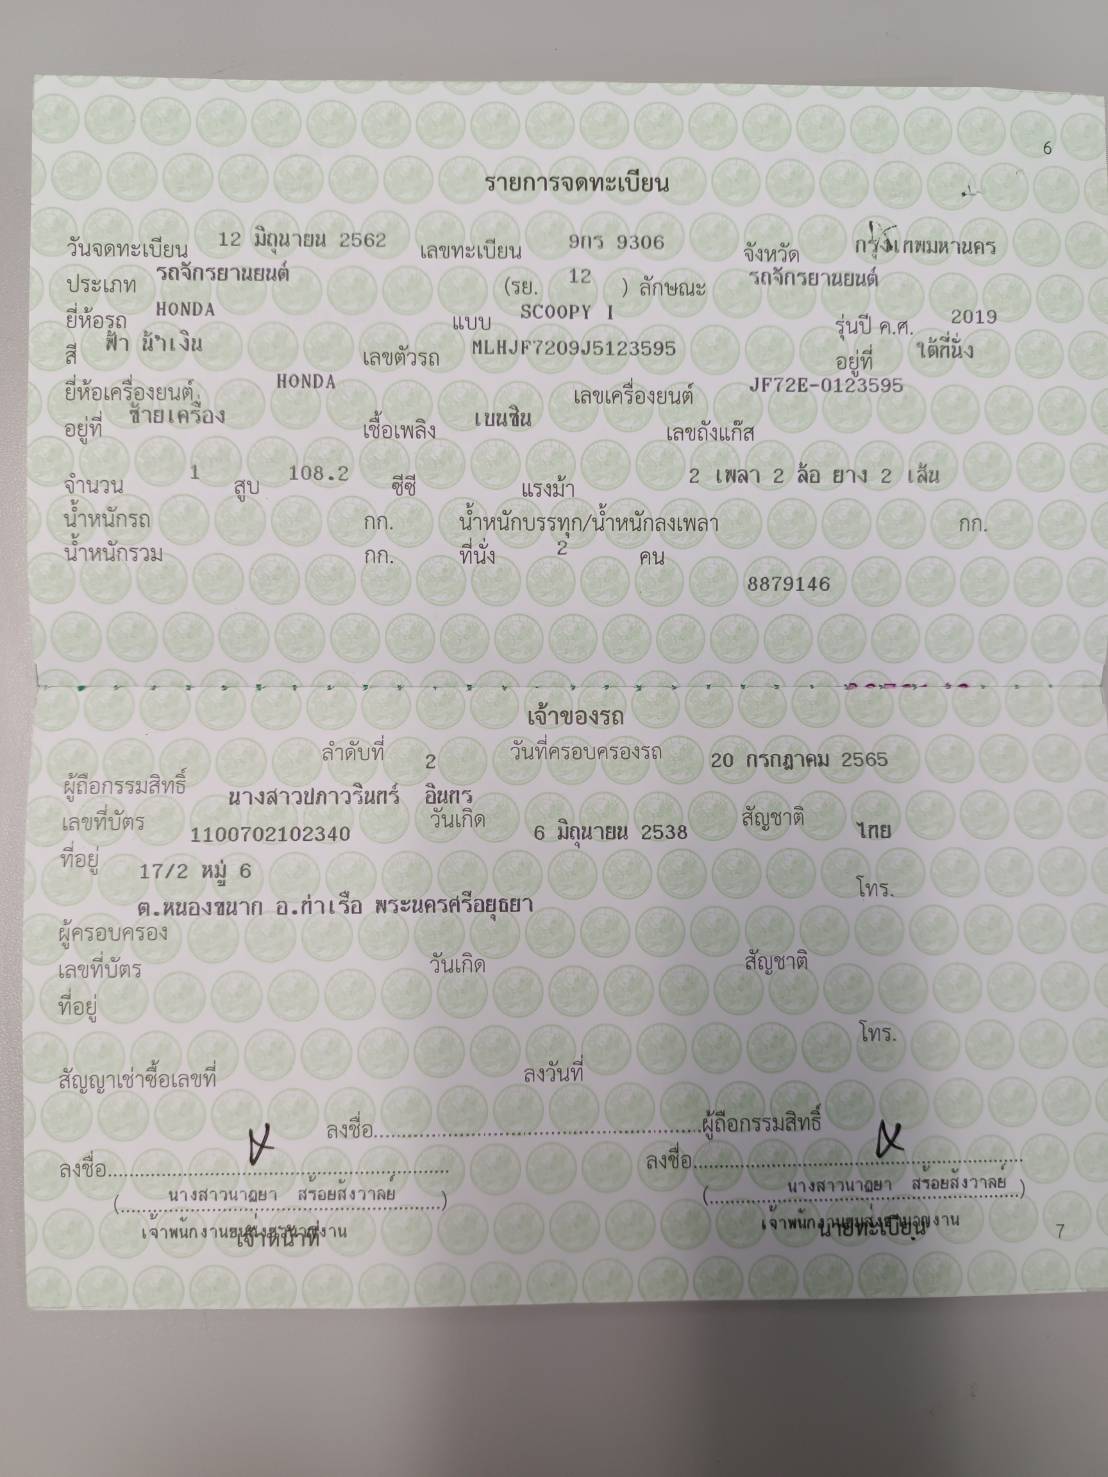 6
รายการจดทะเบียน
วันจดทะเบียน 12 มิถุนายน 2562 เลขทะเบียน 9กร 9306 จังหวัด กรุงเทพมหานคร
ประเภท รถจักรยานยนต์ (รย. 12 ) ลักษณะ รถจักรยานยนต์
ยี่ห้อรถ HONDA แบบ SCOOPY I รุ่นปี ค.ศ. 2019
สี ฟ้า น้ำเงิน เลขตัวรถ MLHJF7209J5123595 อยู่ที่ ใต้ที่นั่ง
ยี่ห้อเครื่องยนต์ HONDA เลขเครื่องยนต์ JF72E-0123595
อยู่ที่ ซ้ายเครื่อง เชื้อเพลิง เบนซิน เลขถังแก๊ส
จำนวน 1 สูบ 108.2 ซีซี แรงม้า 2 เพลา 2 ล้อ ยาง 2 เส้น
น้ำหนักรถ กก. น้ำหนักบรรทุก/น้ำหนักลงเพลา กก.
น้ำหนักรวม กก. ที่นั่ง 2 คน
8879146
เจ้าของรถ
ลำดับที่ 2 วันที่ครอบครองรถ 20 กรกฎาคม 2565
ผู้ถือกรรมสิทธิ์ นางสาวปภาวรินทร์ อินทร
เลขที่บัตร 1100702102340 วันเกิด 6 มิถุนายน 2538 สัญชาติ ไทย
ที่อยู่ 17/2 หมู่ 6 โทร.
ต.หนองขนาก อ.ท่าเรือ พระนครศรีอยุธยา
ผู้ครอบครอง
เลขที่บัตร วันเกิด สัญชาติ
ที่อยู่
โทร.
สัญญาเช่าซื้อเลขที่ ลงวันที่
ลงชื่อ ผู้ถือกรรมสิทธิ์
ลงชื่อ ลงชื่อ
(นางสาวนาฏยา สร้อยสังวาลย์) (นางสาวนาฏยา สร้อยสังวาลย์)
เจ้าพนักงานขนส่งชำนาญงาน เจ้าพนักงานขนส่งชำนาญงาน
เจ้าหน้าที่ นายทะเบียน
7